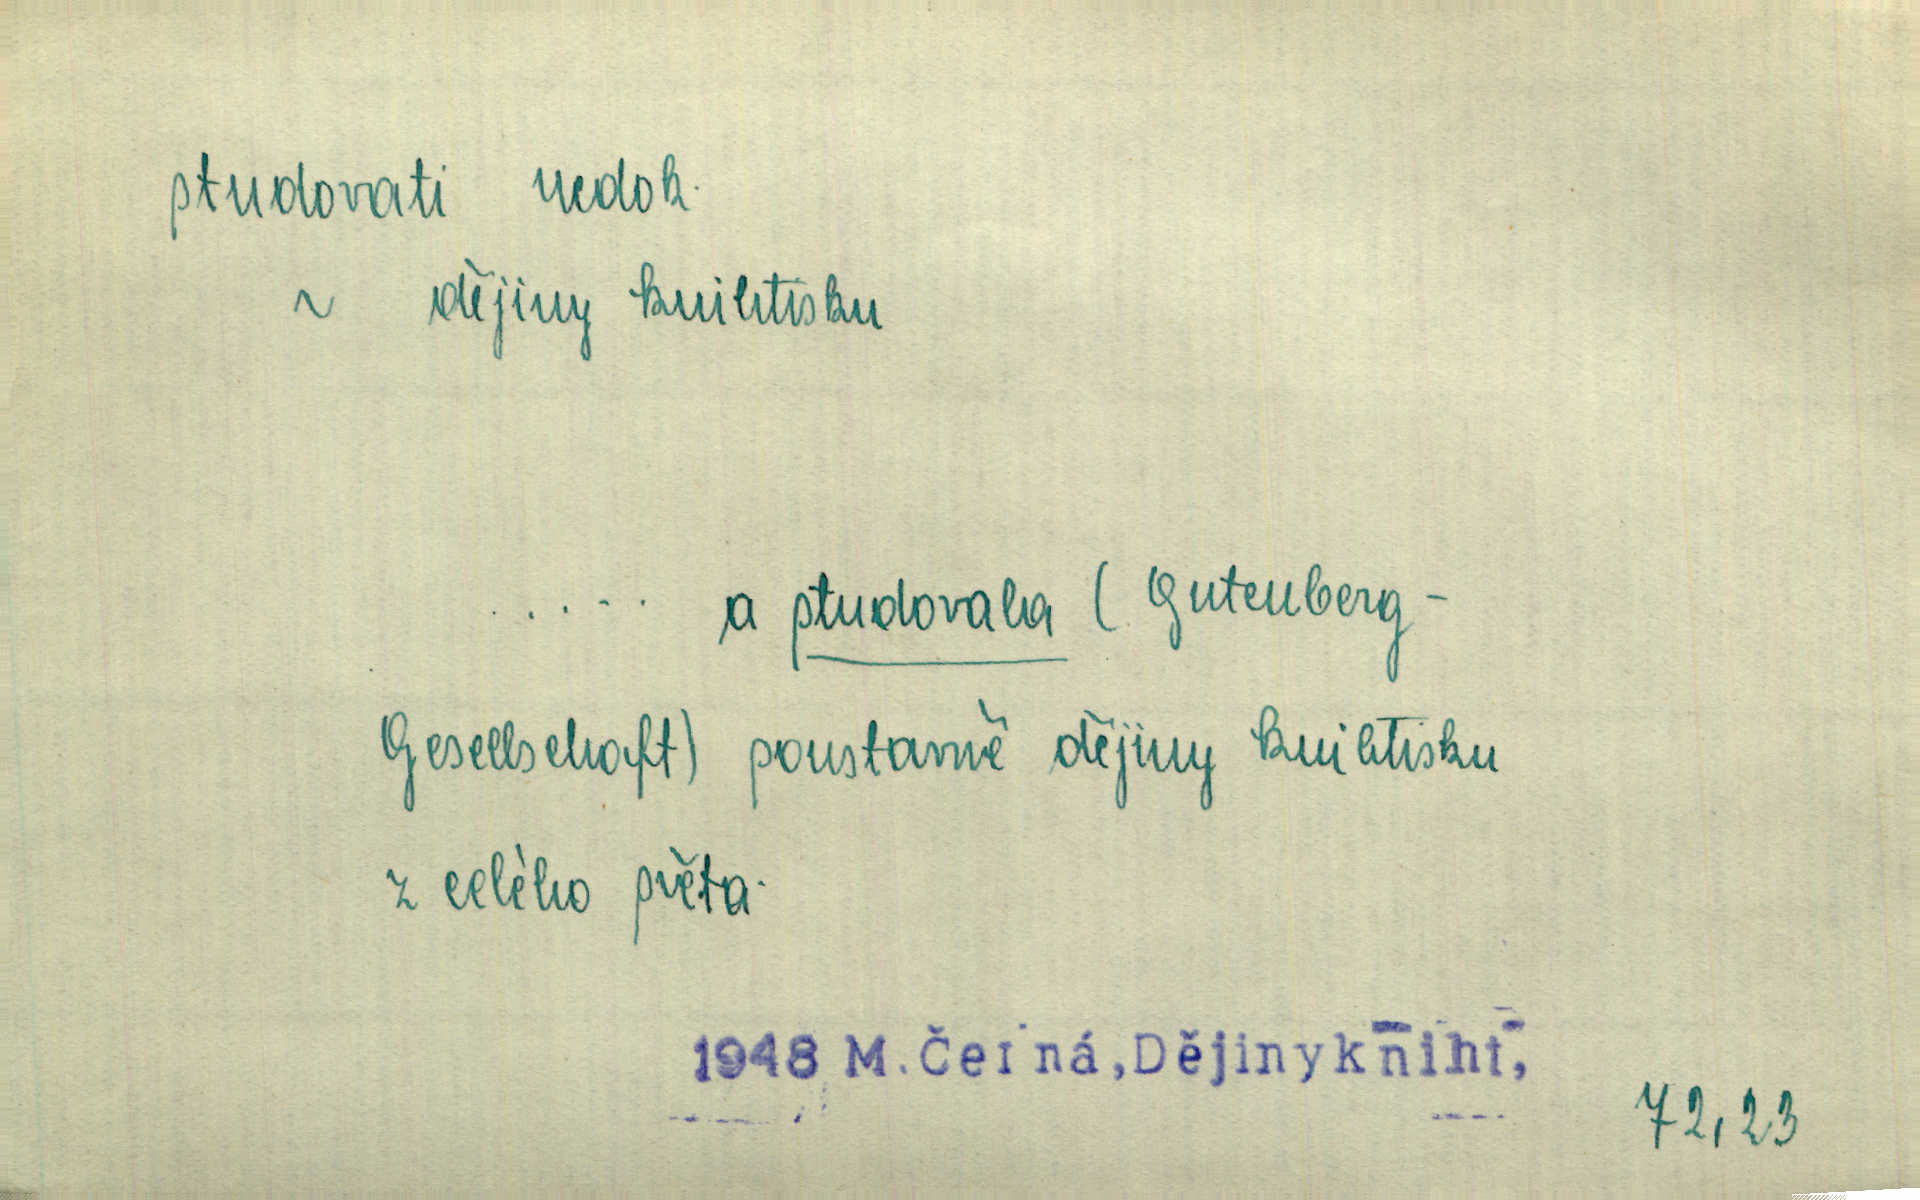 studovati nedok.
~ dějiny knihtisku
..... a studovala (Gutenberg-
Gesellschaft) soustavně dějiny knihtisku
z celého světa.
1948 M. Černá, Dějiny kniht,
72,23